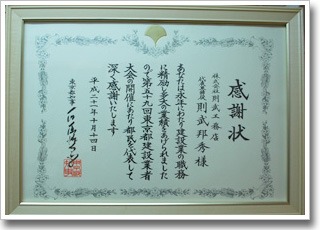 感謝状
株式会社則武工務店
代表取締役 則武邦秀様
あなたは永年にわたり建設業の職務
に精励し多大の業績をあげられました
ので第五十九回東京都建設業者
大会の開催にあたり都民を代表して
深く感謝いたします
平成二十一年十月十四日
東京都知事